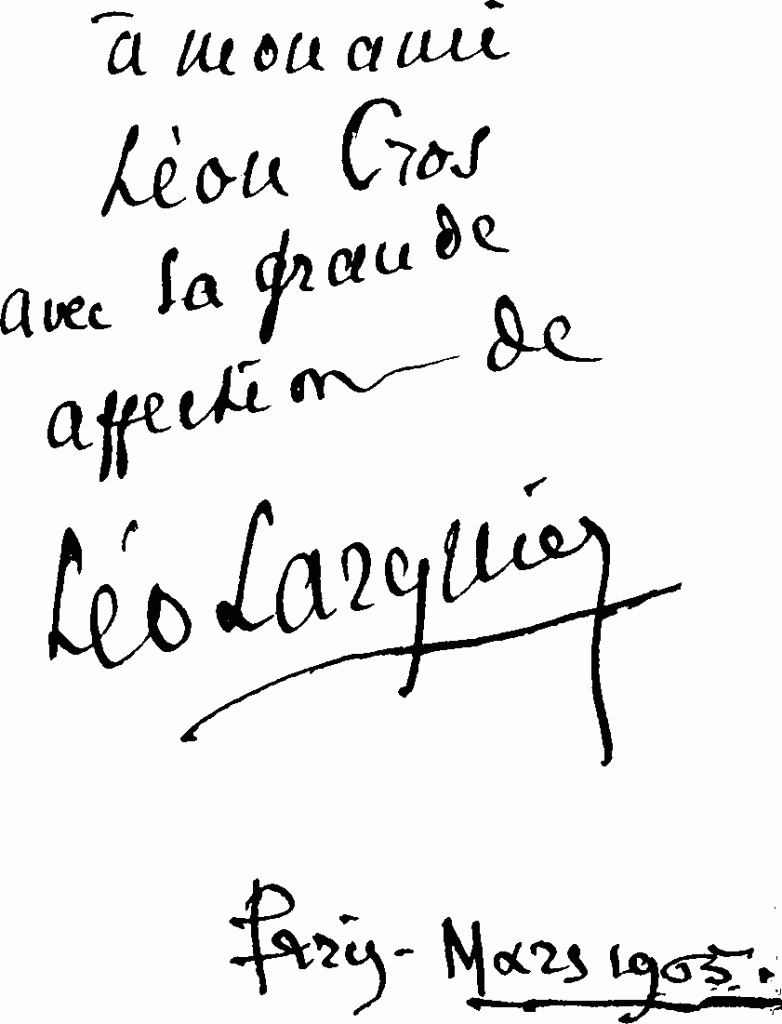 à mon ami
Léon Cros
avec la grande
affection de
Léo Larguier
Paris - Mars 1905.